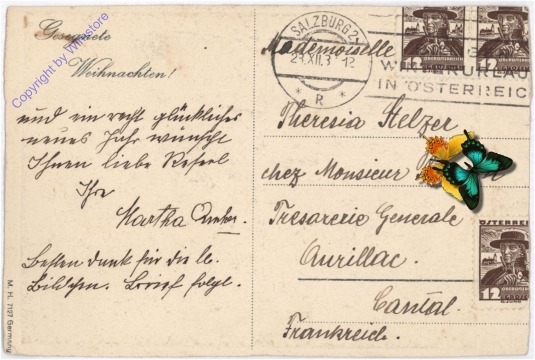 Copyright by Winstore
Gesegnete
Weihnachten!
und ein recht glückliches
neues Jahr wünscht
Ihnen liebe Reserl
Ihre
Martha
Besten Dank für die lb.
Bildchen. Brief folgt.
M. H. 7127 Germany
SALZBURG 2
23.XII.3 12
* R *
WINTERURLAU
IN ÖSTERREIC
Mademoiselle
Theresia Stelzer
chez Monsieur
Tresorerie Generale
Aurillac.
Cantal.
Frankreich.
12
12
ÖSTERREICH
12 GROSCHEN